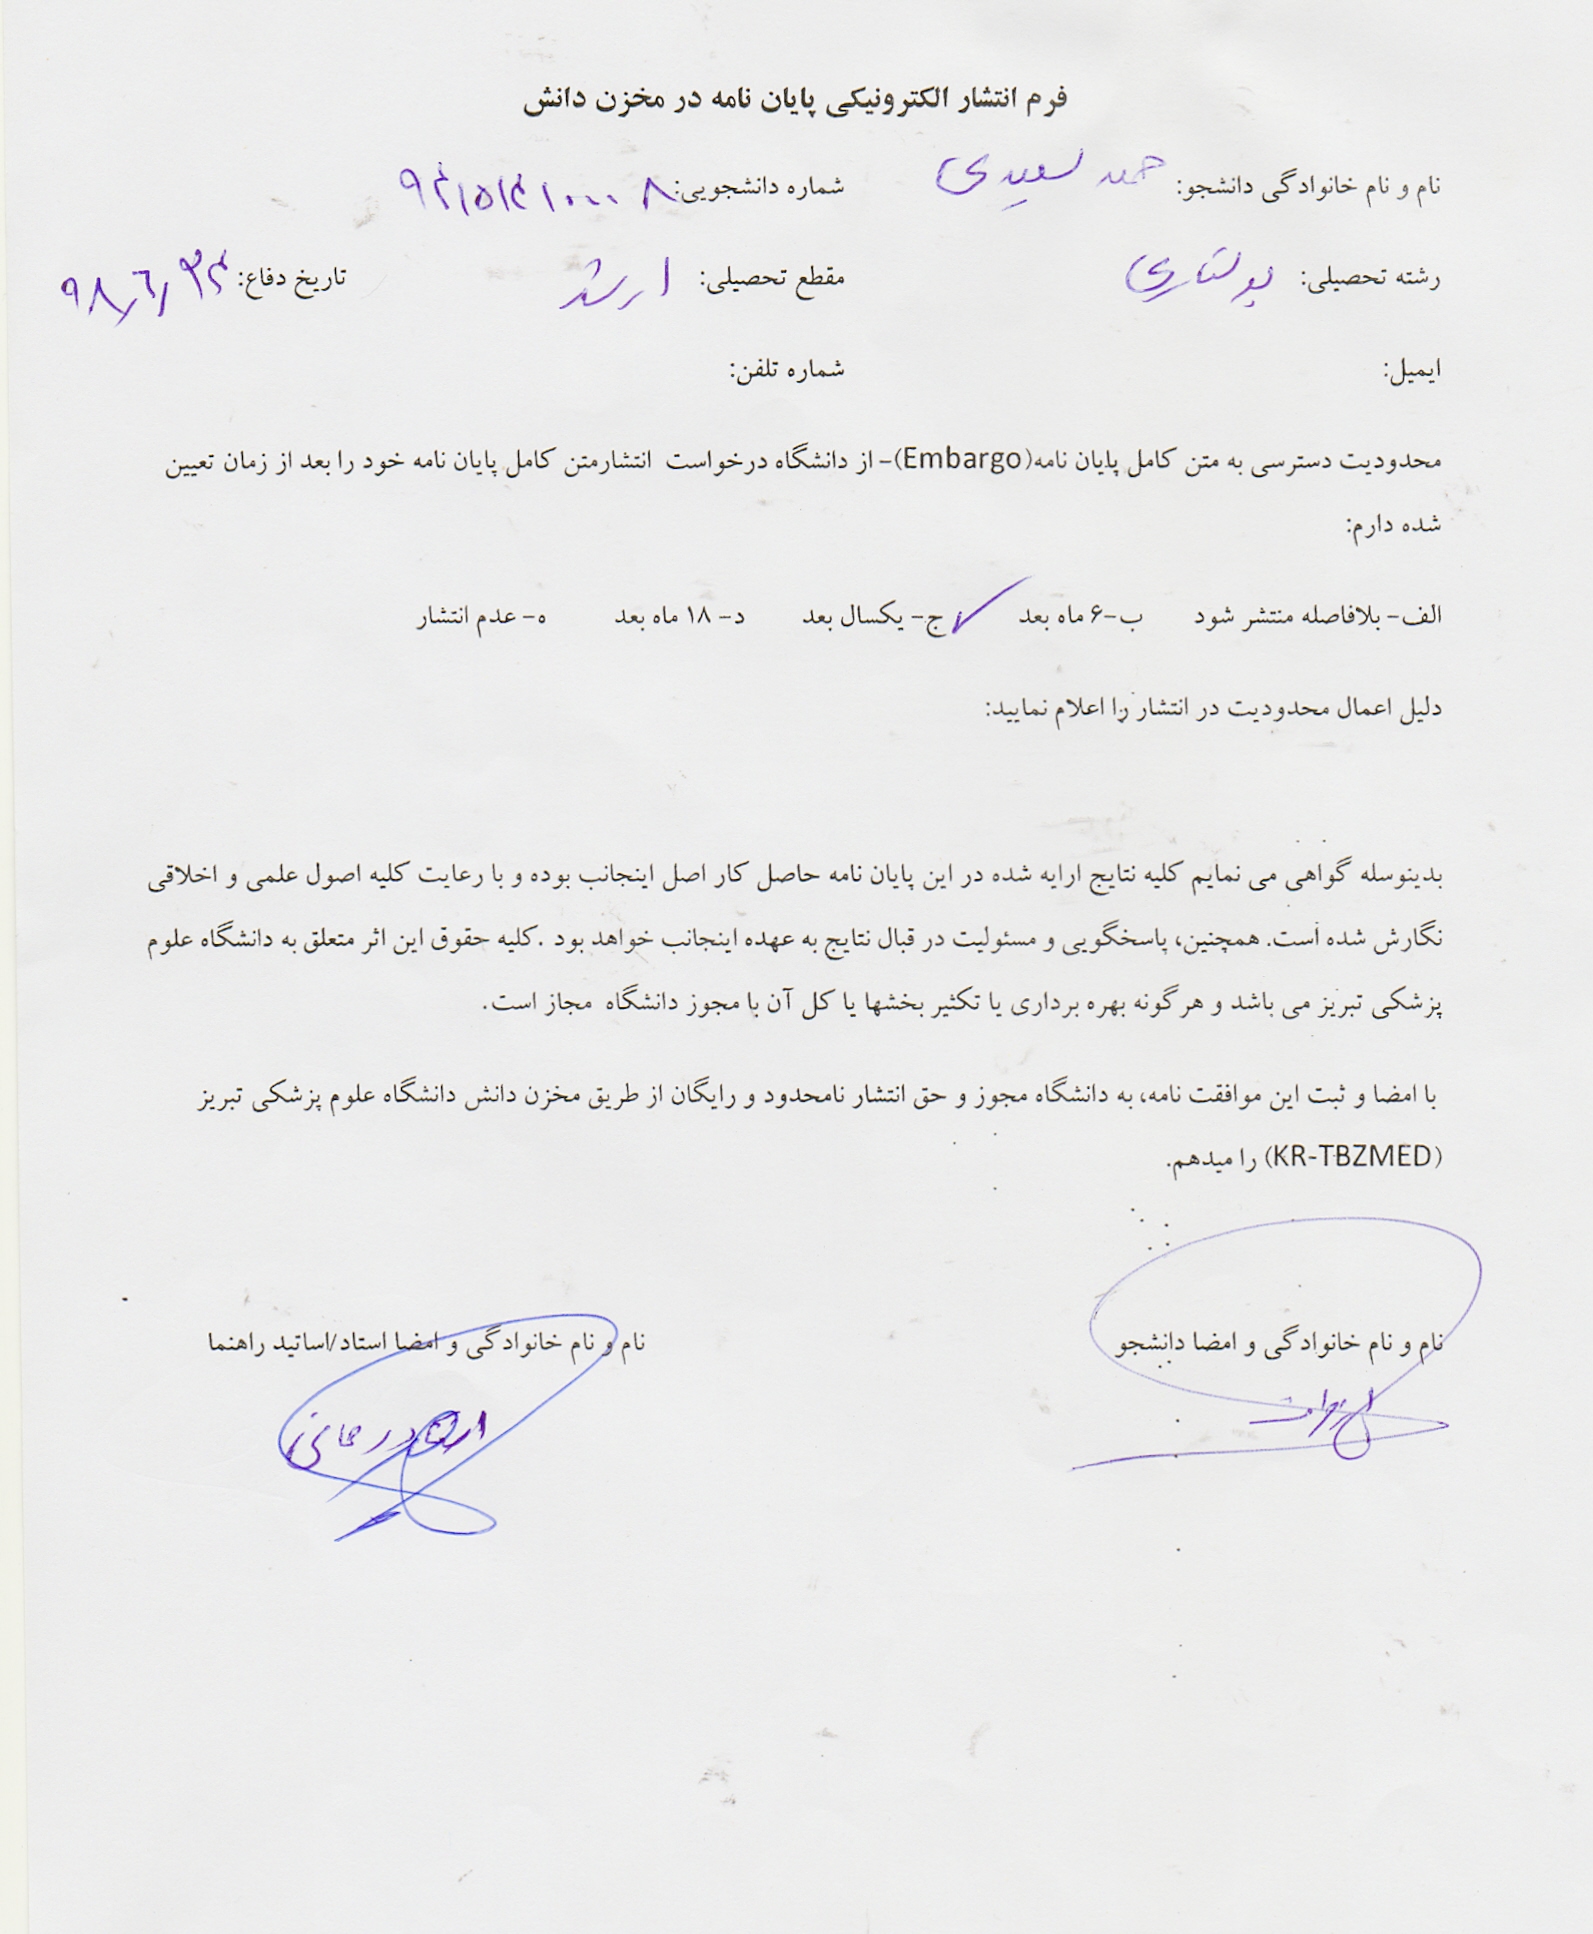 فرم انتشار الکترونیکی پایان نامه در مخزن دانش
نام و نام خانوادگی دانشجو: حمید سعیدی شماره دانشجویی:
رشته تحصیلی: پرستاری مقطع تحصیلی: ارشد تاریخ دفاع:
ایمیل: شماره تلفن:
محدودیت دسترسی به متن کامل پایان نامه(Embargo)- از دانشگاه درخواست انتشارمتن کامل پایان نامه خود را بعد از زمان تعیین
شده دارم:
الف- بلافاصله منتشر شود ب-۶ ماه بعد ✓ج- یکسال بعد د- ۱۸ ماه بعد ه- عدم انتشار
دلیل اعمال محدودیت در انتشار را اعلام نمایید:
بدینوسله گواهی می نمایم کلیه نتایج ارایه شده در این پایان نامه حاصل کار اصل اینجانب بوده و با رعایت کلیه اصول علمی و اخلاقی
نگارش شده است. همچنین، پاسخگویی و مسئولیت در قبال نتایج به عهده اینجانب خواهد بود .کلیه حقوق این اثر متعلق به دانشگاه علوم
پزشکی تبریز می باشد و هرگونه بهره برداری یا تکثیر بخشها یا کل آن با مجوز دانشگاه مجاز است.
با امضا و ثبت این موافقت نامه، به دانشگاه مجوز و حق انتشار نامحدود و رایگان از طریق مخزن دانش دانشگاه علوم پزشکی تبریز
(KR-TBZMED) را میدهم.
نام و نام خانوادگی و امضا دانشجو نام و نام خانوادگی و امضا استاد/اساتید راهنما